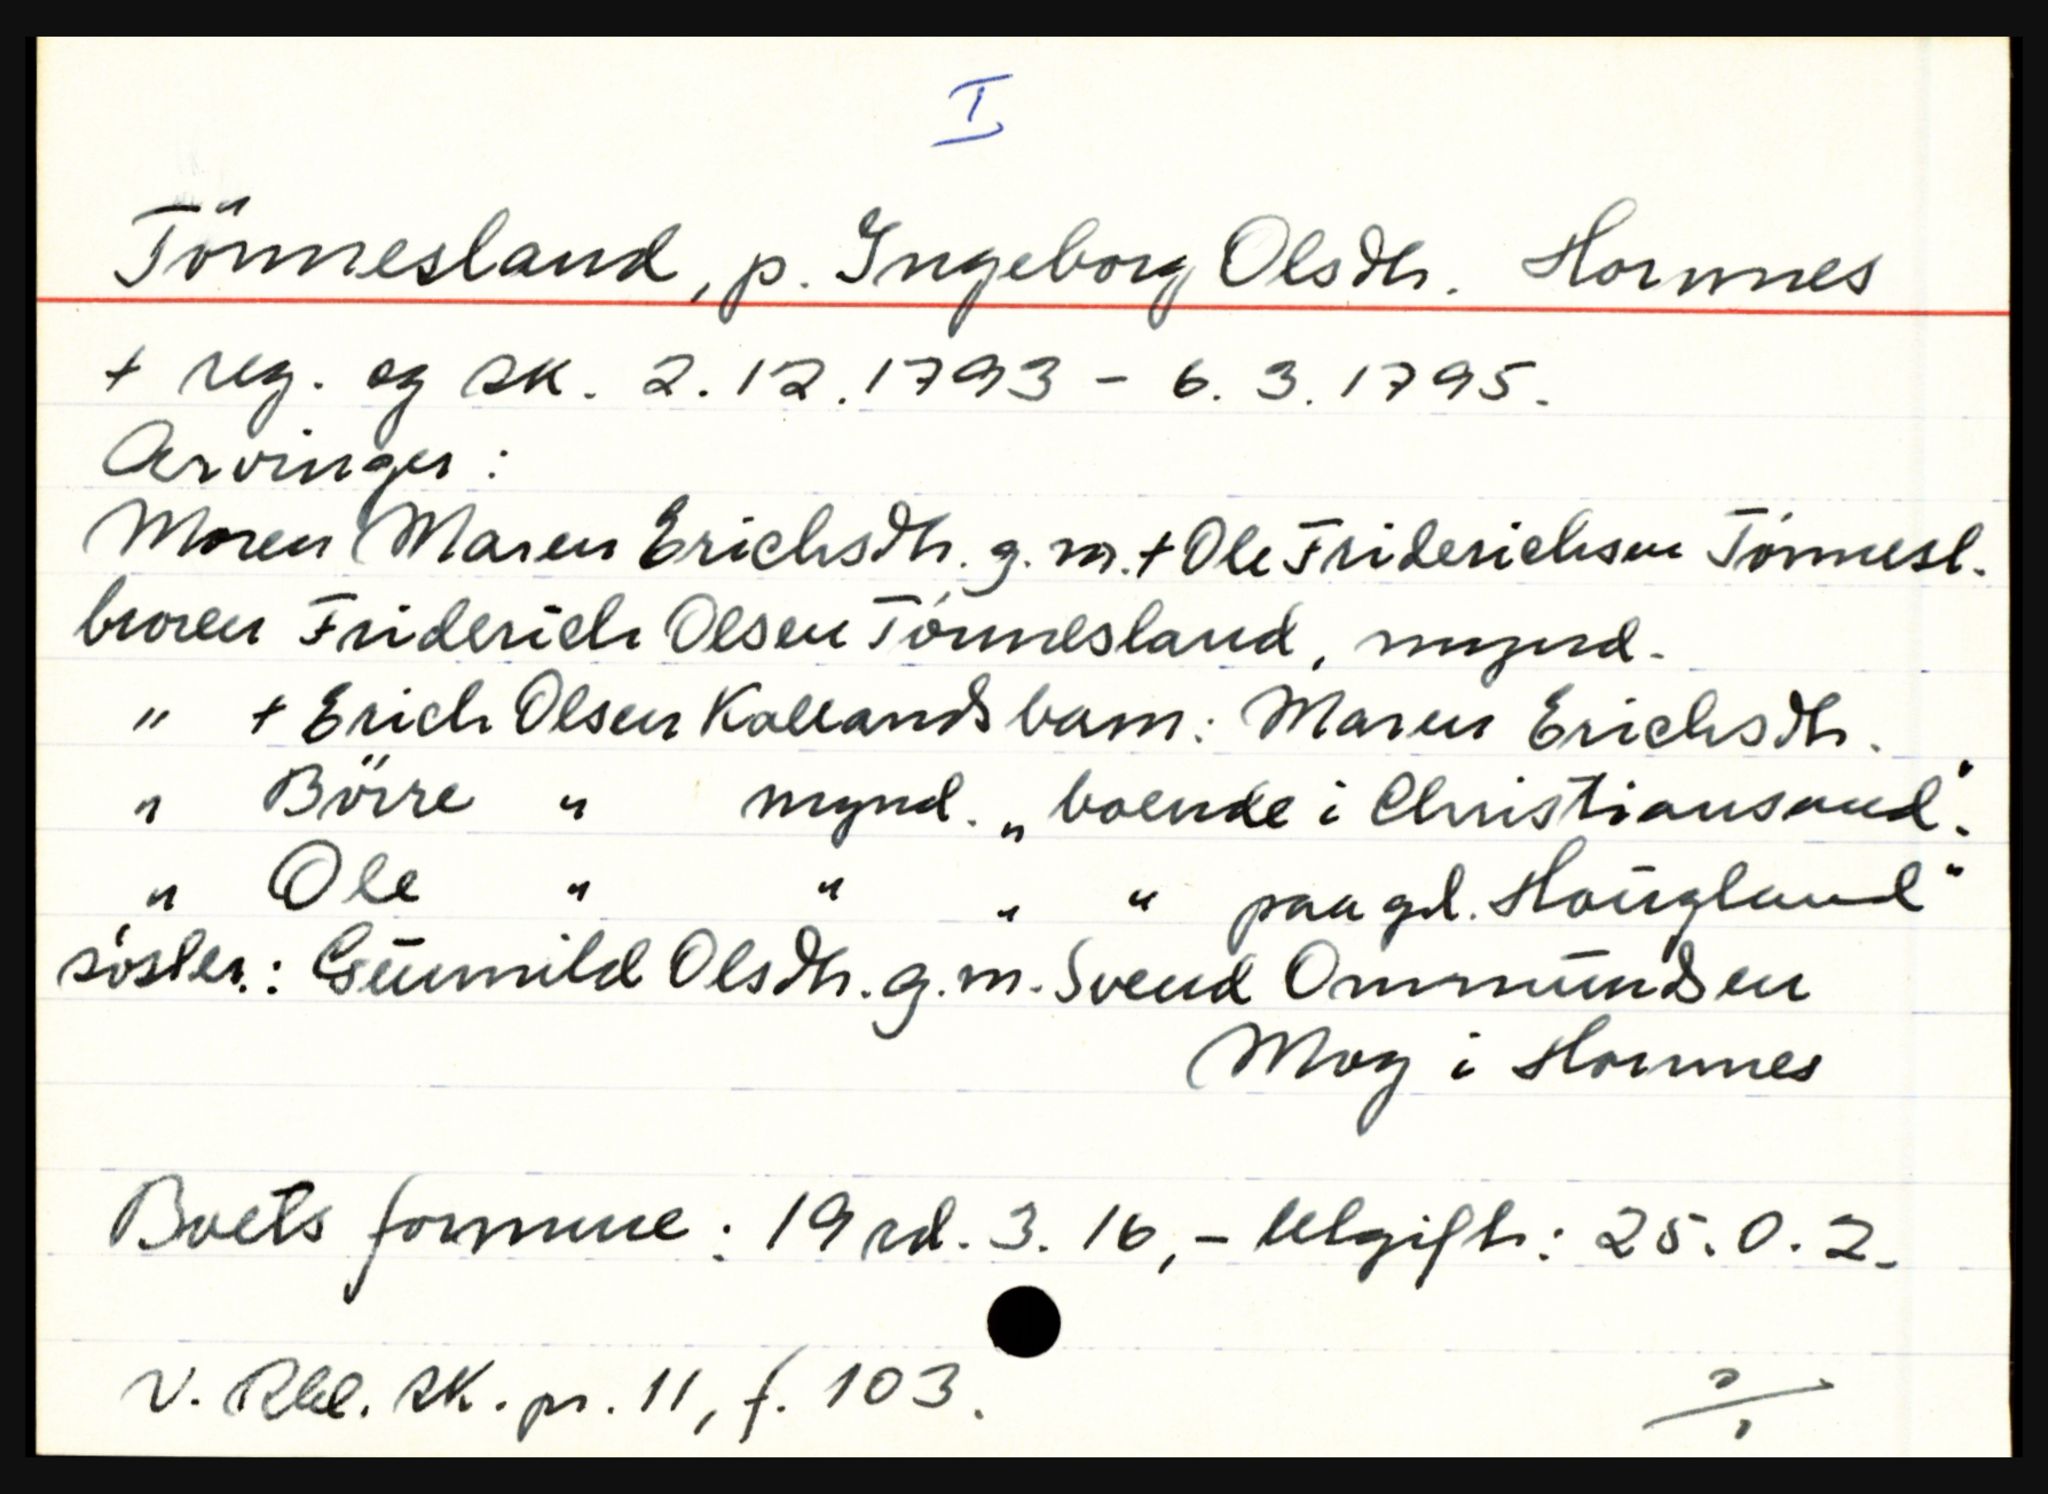 I
Tönnesland, p. Ingeborg Olsdtr. Hornnes
+ reg. og sk. 2.12.1793 - 6.3.1795.
Arvinger:
Moren Maren Erichsdtr. g.m. + Ole Friderichsen Tönnesl.
broren Friderich Olsen Tönnesland, mynd.
" + Erich Olsen Kallands barn: Maren Erichsdtr.
" Börre " mynd. „boende i Christiansand".
" Ole " " „ " paa gd. Hougland"
söster.: Gunnild Olsdtr. g.m. Svend Ommundsen
Moy i Hornnes
Boets formue: 19 rd. 3. 16,- Utgift: 25.0.2.
V. Rbl. sk. pr. 11, f. 103.